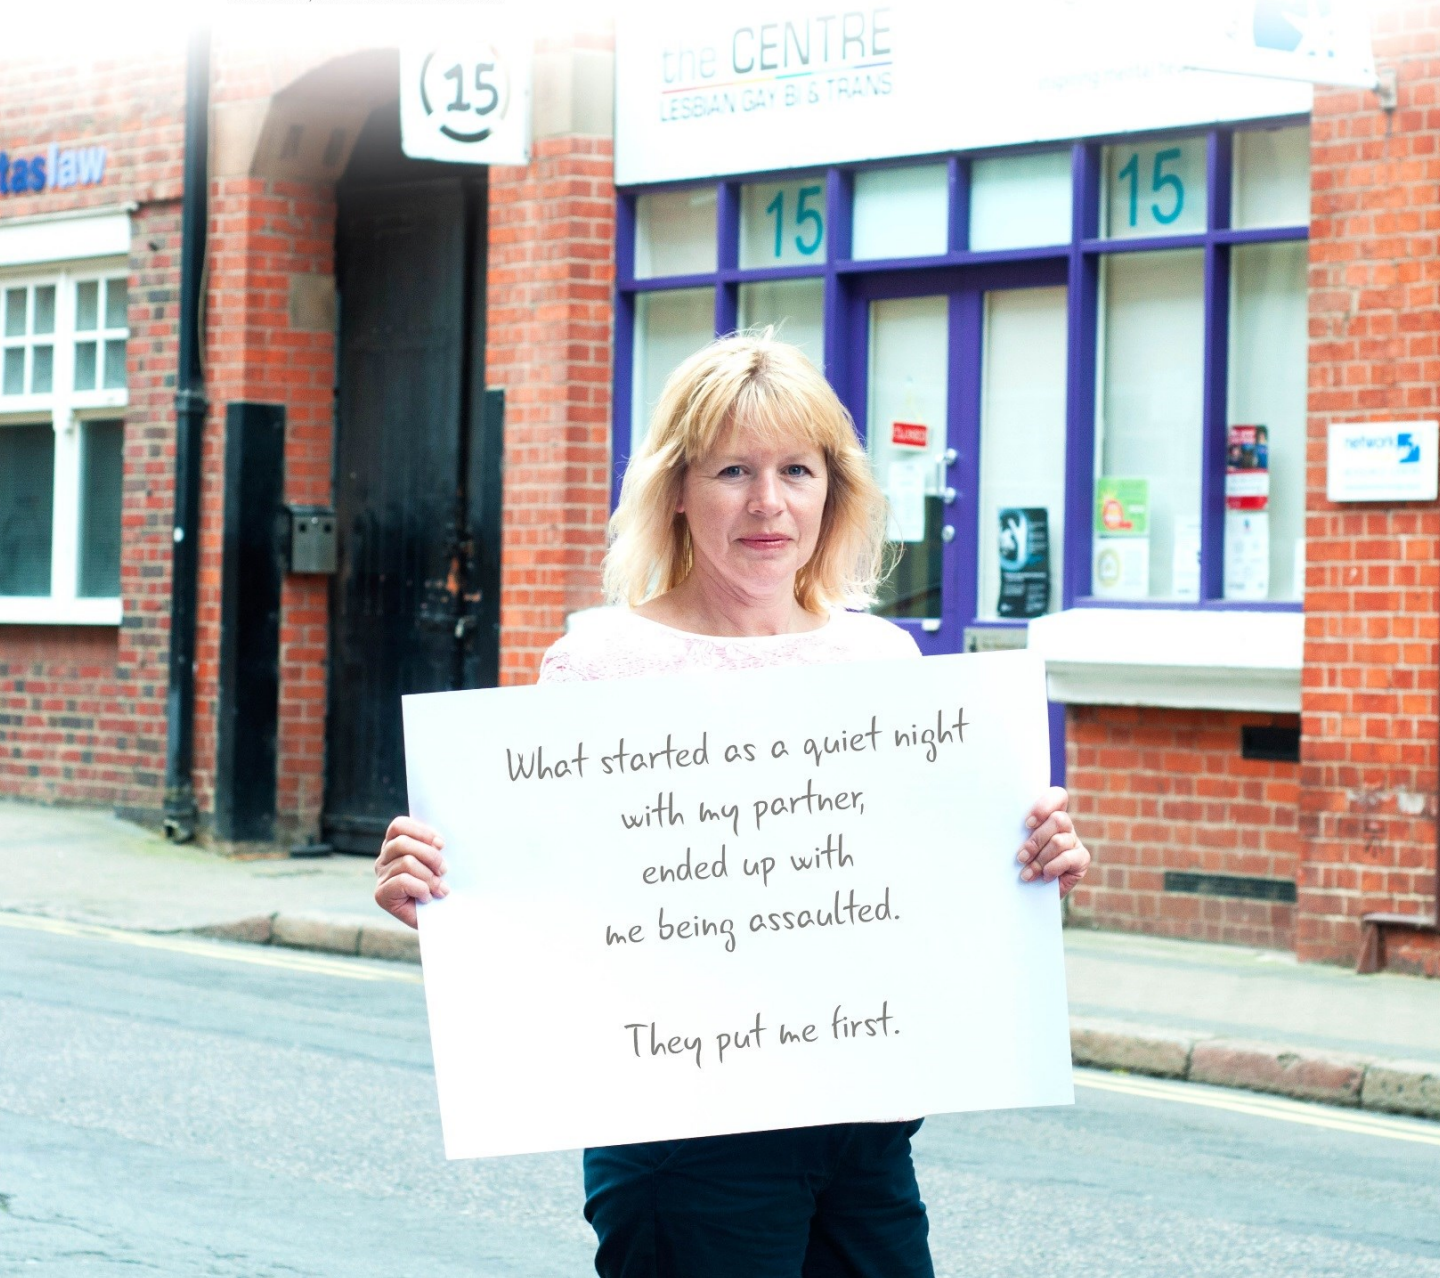 15
the CENTRE
LESBIAN GAY BI & TRANS
taslaw
15
15
CLOSED
network
What started as a quiet night
with my partner,
ended up with
me being assaulted.
They put me first.